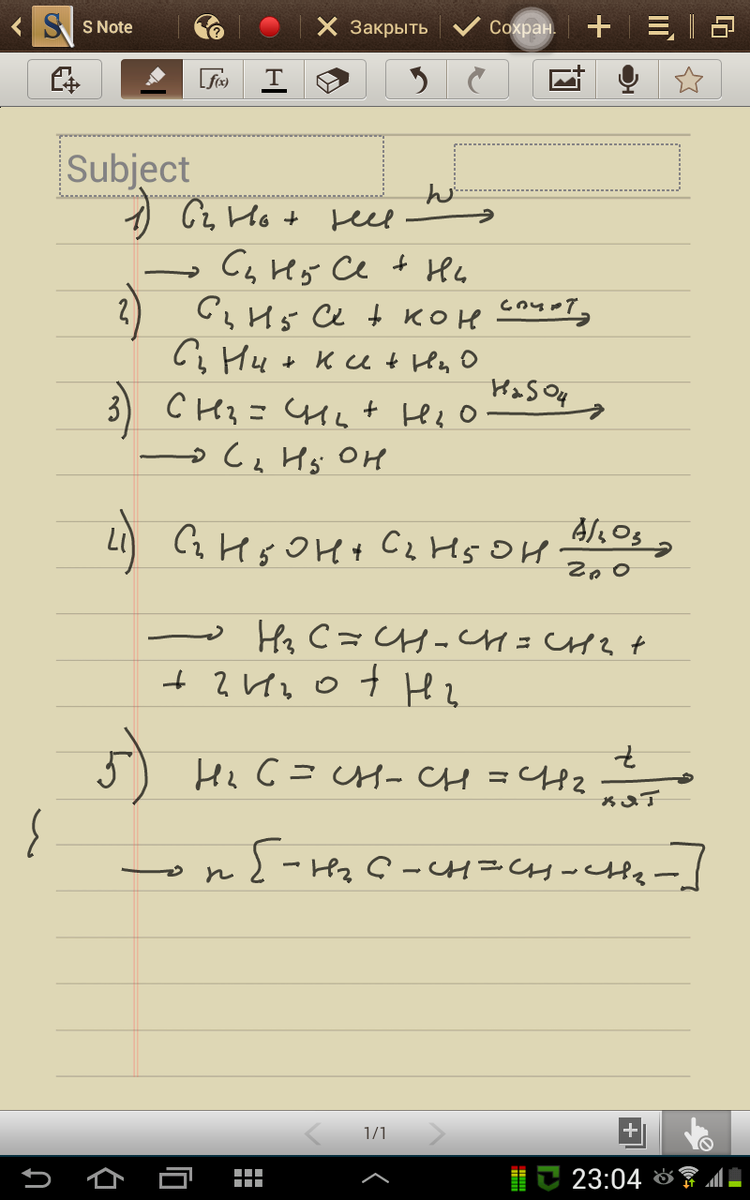 S Note
Закрыть
Сохран.
f(x)
T
Subject
1) C₂H₆ + HCl hν →
→ C₂H₅Cl + H₂
2) C₂H₅Cl + KOH спирт →
C₂H₄ + KCl + H₂O
3) CH₂ = CH₂ + H₂O H₂SO₄ →
→ C₂H₅OH
4) C₂H₅OH + C₂H₅OH Al₂O₃ / ZnO →
→ H₂C = CH - CH = CH₂ +
+ 2H₂O + H₂
5) H₂C = CH - CH = CH₂ t / кат →
→ n [ - H₂C - CH = CH - CH₂ - ]
1/1
23:04